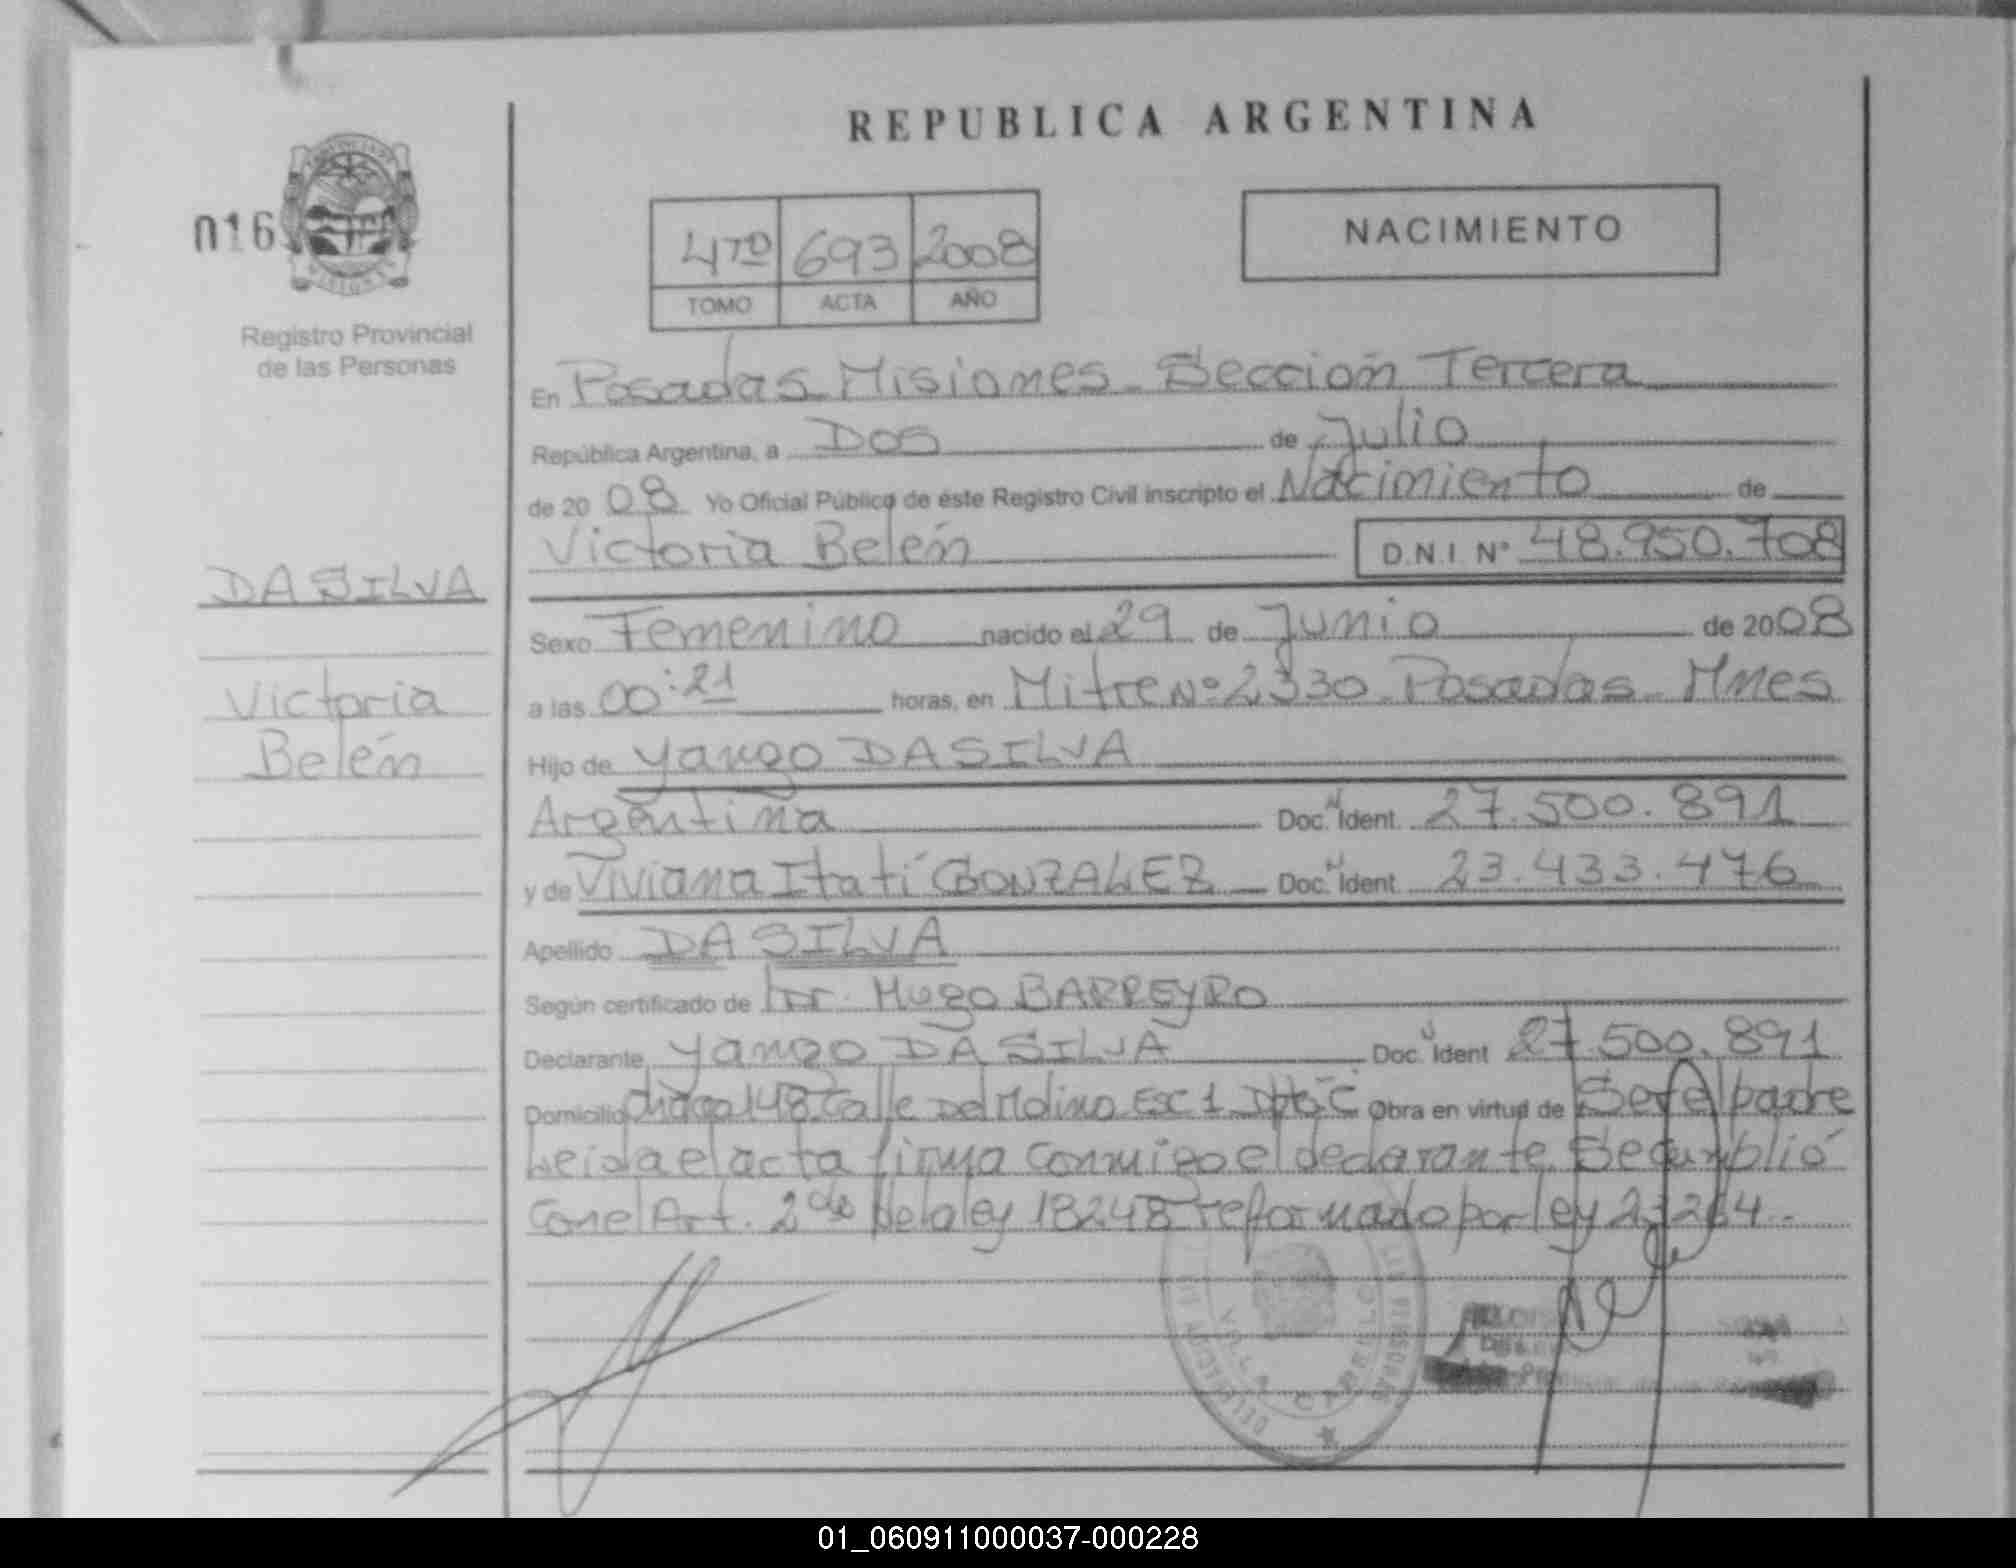 REPUBLICA ARGENTINA
016
Registro Provincial
de las Personas
4TO 693 2008
TOMO ACTA AÑO
NACIMIENTO
En Posadas Misiones Sección Tercera
República Argentina, a Dos de Julio
de 2008 Yo Oficial Público de este Registro Civil inscripto el Nacimiento de
Victoria Belén D.N.I. Nº 48.950.708
DA SILVA
Victoria
Belén
Sexo Femenino nacido el 29 de Junio de 2008
a las 00:21 horas, en Mitre Nº 2330 Posadas Mnes
Hijo de Yango DA SILVA
Argentina Doc. Ident. 27.500.891
y de Viviana Itatí GONZALEZ Doc. Ident. 23.433.476
Apellido DA SILVA
Según certificado de Dr. Hugo BARREYRO
Declarante Yango DA SILVA Doc. Ident 27.500.891
Domicilio 148 Calle Del Molino Esc 1 Obra en virtud de Ser el padre
Leida el acta firma conmigo el declarante. Se cumplió
con el Art. 2do de la ley 18248 reformado por ley
VILLA CABELLO
01_060911000037-000228